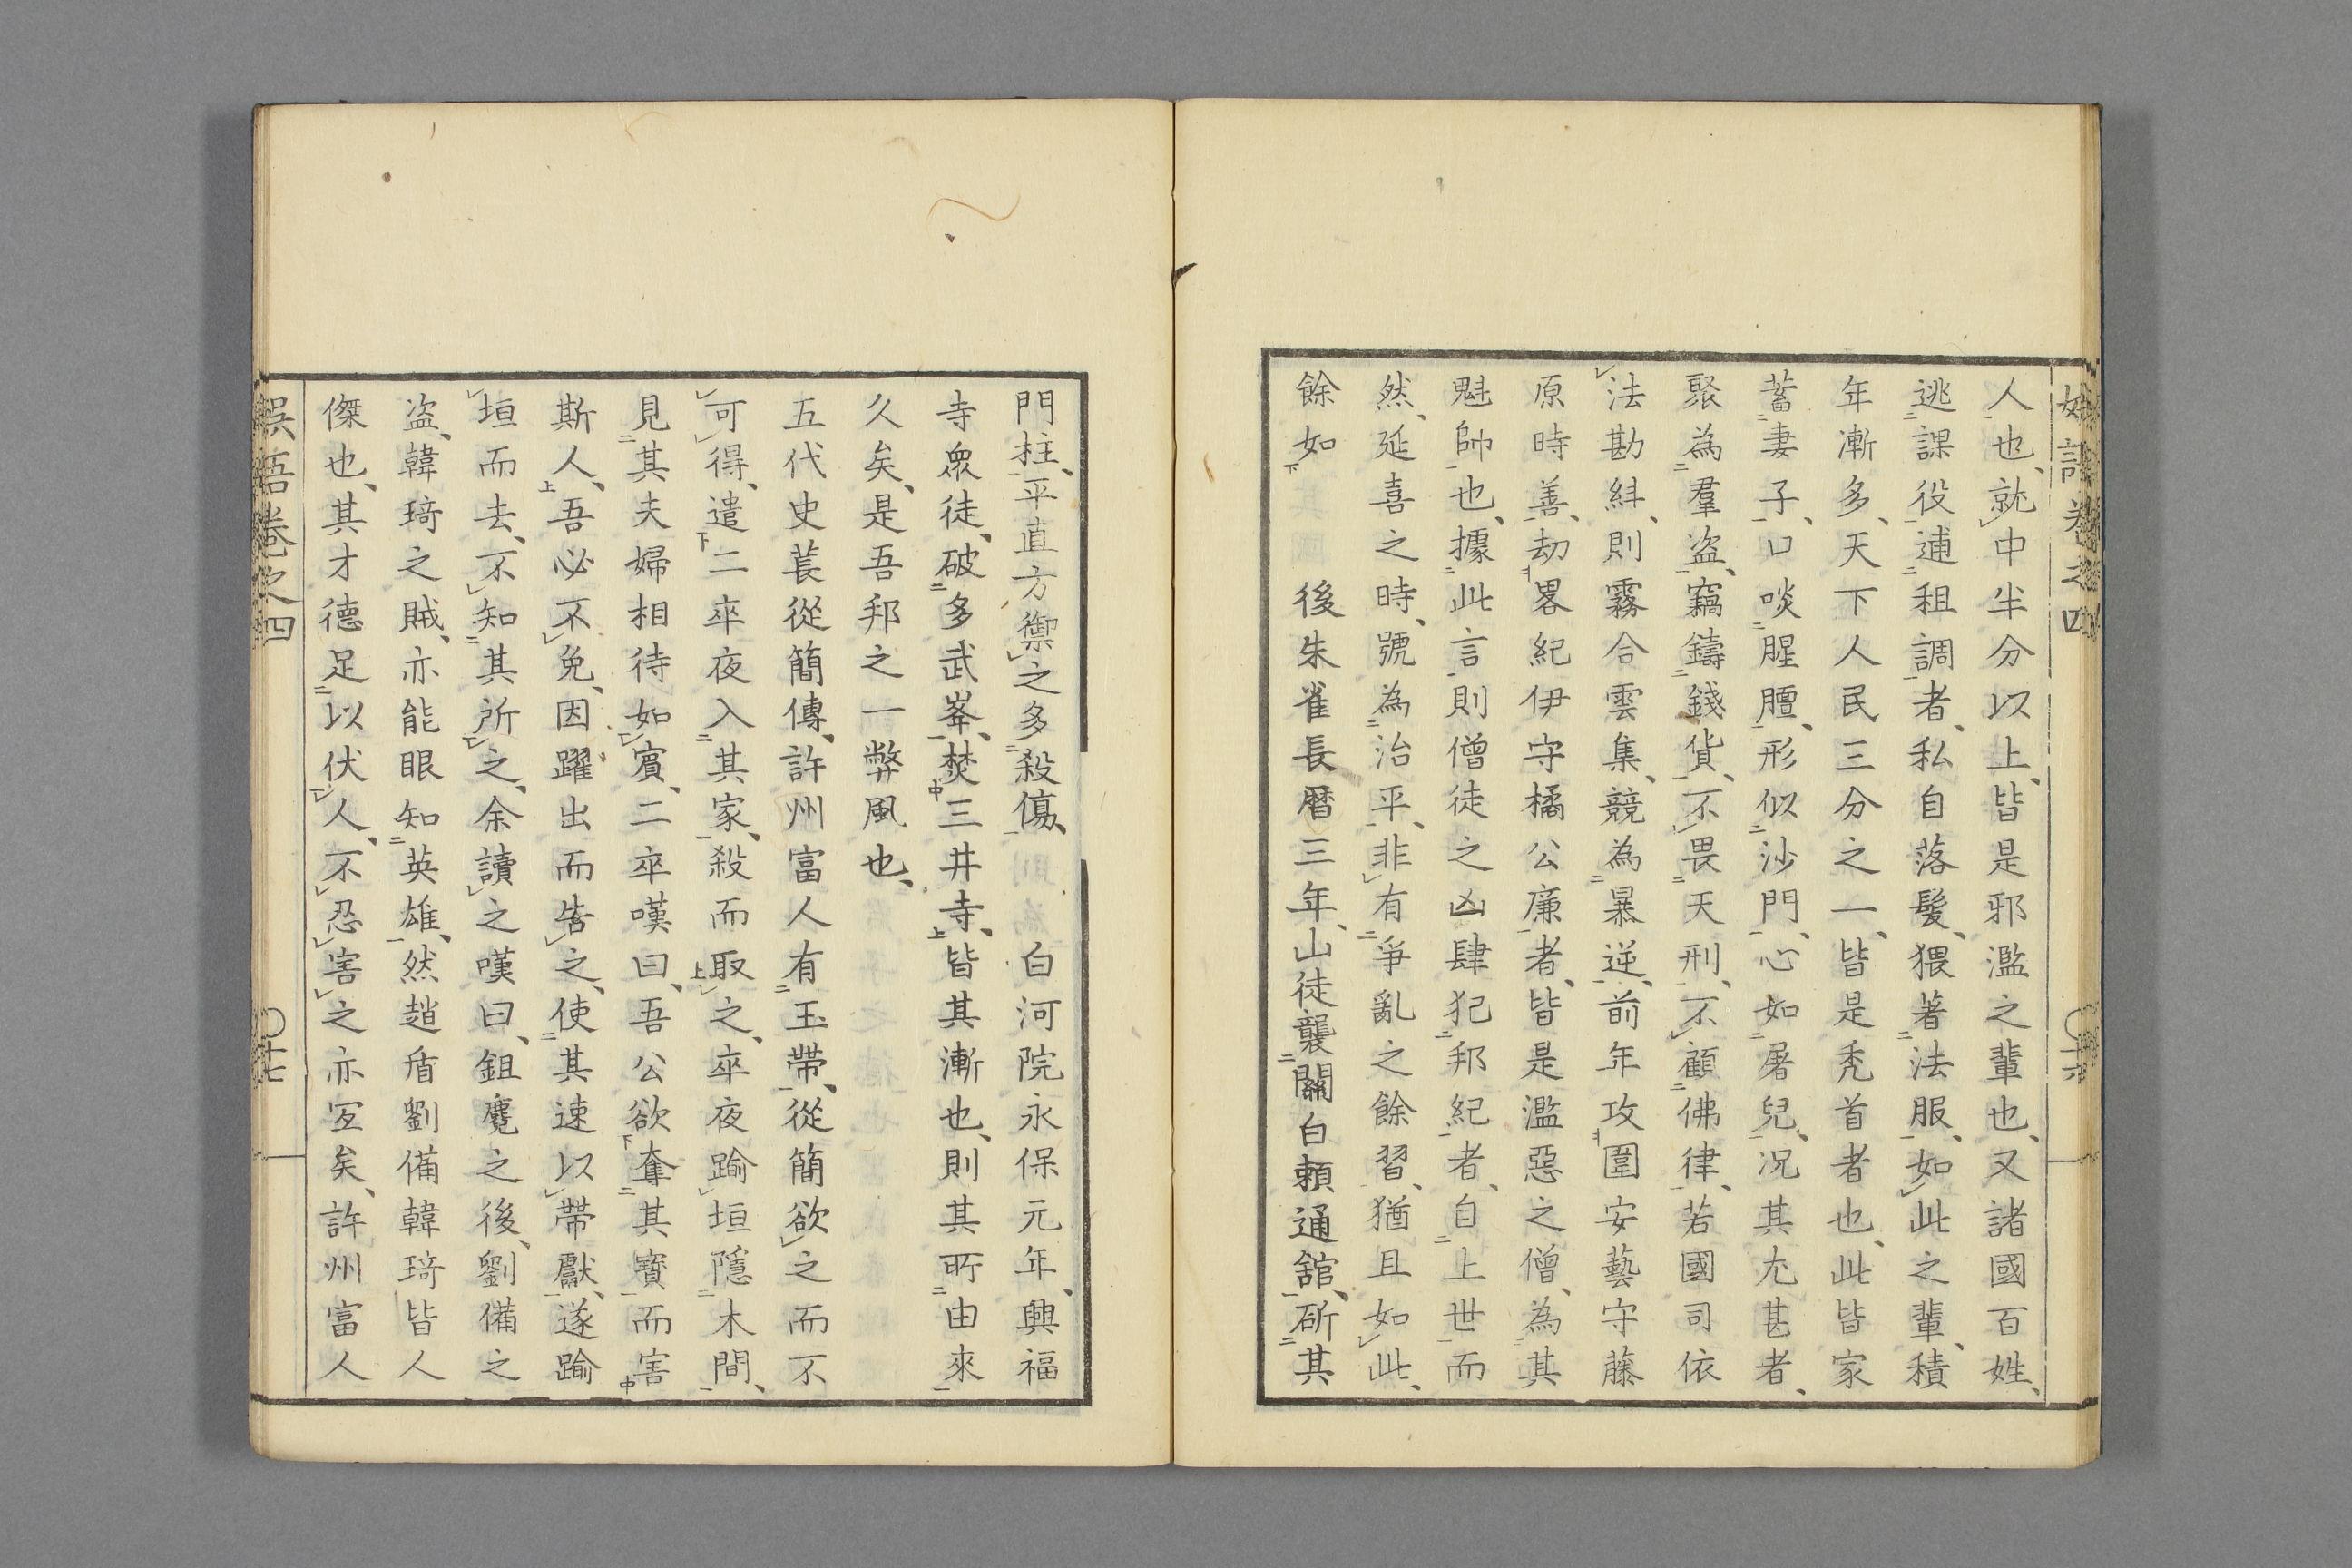 人也、就中半分以上、皆是邪濫之輩也、又諸國百姓、
逃課役逋租調者、私自落髮、猥著法服、如此之輩、積
年漸多、天下人民三分之一、皆是禿首者也、此皆家
蓄妻子、口啖腥膻、形似沙門、心如屠兒、况其尤甚者、
聚為羣盗、竊鑄錢貨、不畏天刑、不顧佛律、若國司依
法勘糾、則霧合雲集、競為暴逆、前年攻圍安藝守藤
原時善、劫畧紀伊守橘公廉者、皆是濫惡之僧、為其
魁帥也、據此言則僧徒之凶肆犯邦紀者、自上世而
然、延喜之時、號為治平、非有爭亂之餘習、猶且如此、
餘如　　後朱雀長曆三年、山徒襲關白賴通舘、斫其
門柱、平直方禦之多殺傷、　　白河院永保元年、興福
寺衆徒、破多武峯、焚三井寺、皆其漸也、則其所由來
久矣、是吾邦之一弊風也、
五代史萇從簡傳、許州富人有玉帶、從簡欲之而不
可得、遣二卒夜入其家、殺而取之、卒夜踰垣隱木間、
見其夫婦相待如賓、二卒嘆曰、吾公欲奪其寶而害
斯人、吾必不免、因躍出而告之、使其速以帶獻、遂踰
垣而去、不知其所之、余讀之嘆曰、鉏麑之後、劉備之
盗、韓琦之賊、亦能眼知英雄、然趙盾劉備韓琦皆人
傑也、其才德足以伏人、不忍害之亦宜矣、許州富人
卷之四
十七